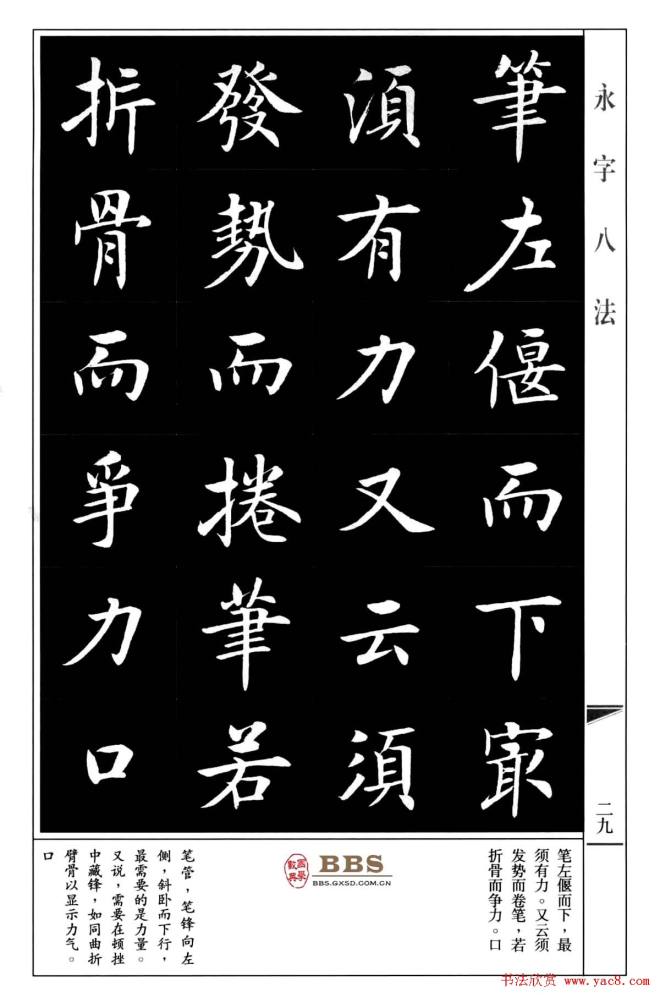 永字八法
筆左偃而下㝡
湏有力又云湏
發勢而捲筆若
折骨而爭力口
二九
笔左偃而下，最
须有力。又云须
发势而卷笔，若
折骨而争力。口
國學數典
BBS
BBS.GXSD.COM.CN
笔管，笔锋向左
侧，斜卧而下行，
最需要的是力量。
又说，需要在顿挫
中藏锋，如同曲折
臂骨以显示力气。
口
书法欣赏 www.yac8.com